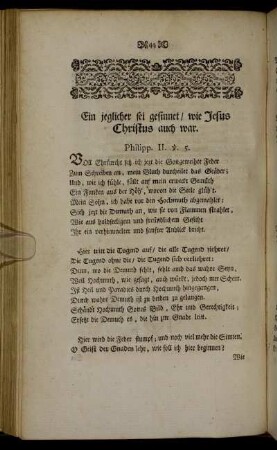 44
Ein jeglicher sei gesinnet/ wie Jesus
Christus auch war.
Philipp. II. v. 5.
Voll Ehrfurcht setz ich jetzt die Gottgeweihte Feder
Zum Schreiben an,
Und, wie ich fühle, fällt auf mein erweckt Gemüth
Ein Funken aus der Höh', wovon die Seele glüht.
Mein Sohn, ich habe vor den Hochmuth abgemahlet;
Sieh jetzt die Demuth an, wie sie von Flammen strahlet,
Wie aus holdseeligem und freundlichem Gesicht
Ihr ein verhimmelter und sanfter Anblick bricht.
Hier tritt die Tugend auf/ die alle Tugend ziehret/
Die Tugend ohne die/ die Tugend sich verliehret;
Dann, wo die Demuth fehlt, fehlt auch das wahre Seyn,
Weil Hochmuth, wie gesagt, auch würket, jedoch nur Schein.
Ist Heil und Paradies durch Hochmuth hingegangen,
Durch wahre Demuth ist es beiden zu gelangen.
Schändt Hochmuth Gottes Bild, Ehr und Gerechtigkeit;
Ersetzt die Demuth es, die hin zur Gnade
Hier wird die Feder stumpf; und noch viel mehr die Sinnen.
O Geist der Gnaden lehr, wie soll ich hier beginnen?
Wie